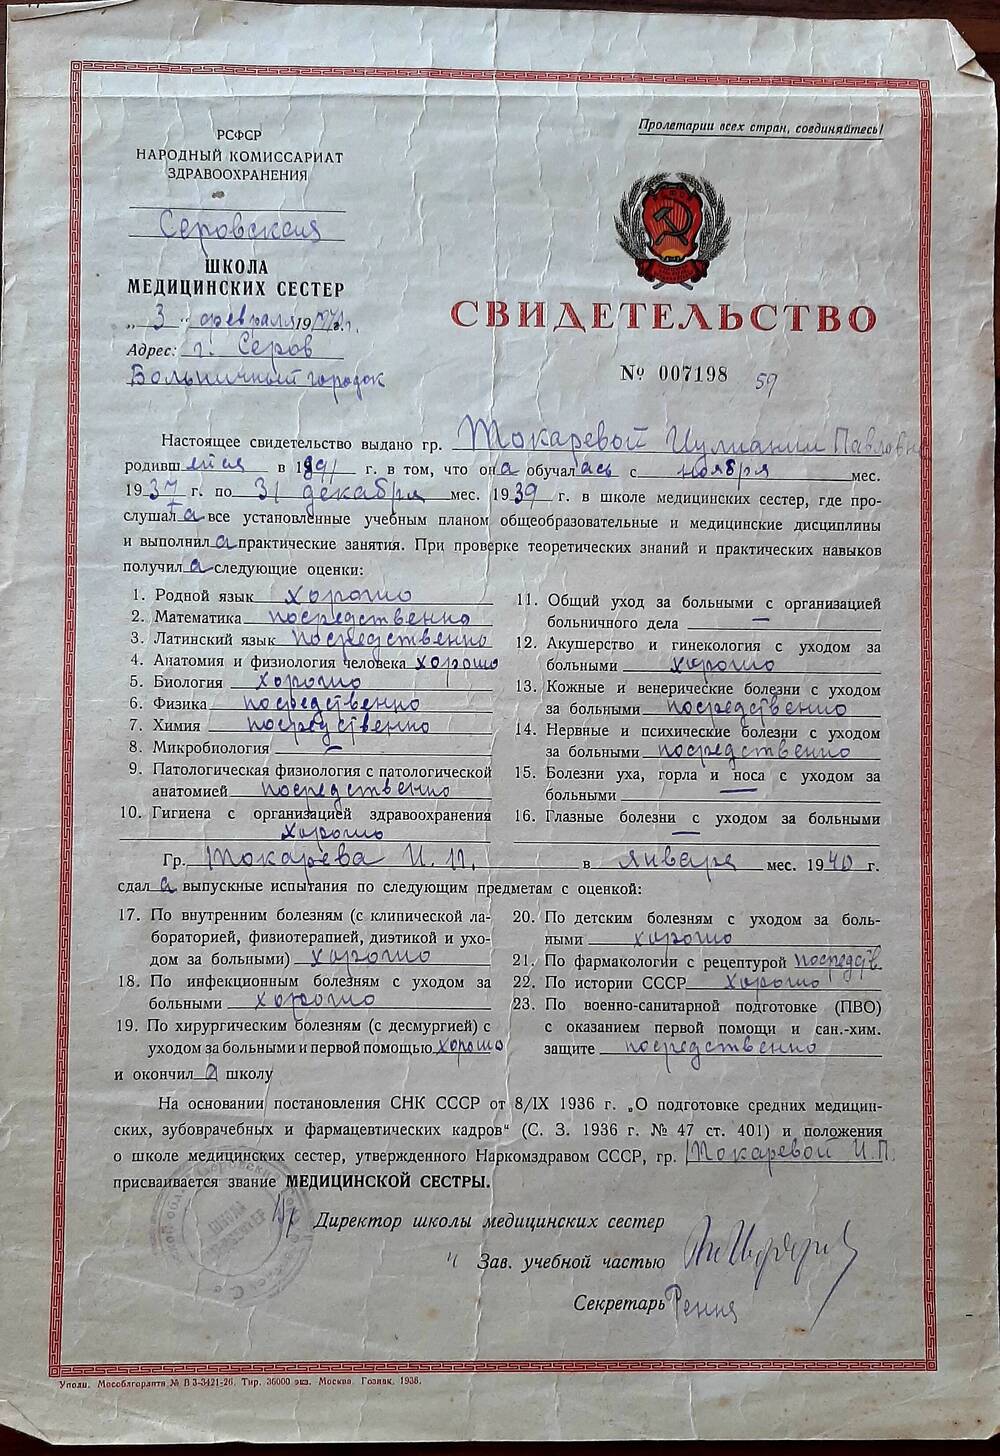 Пролетарии всех стран, соединяйтесь!
РСФСР
НАРОДНЫЙ КОМИССАРИАТ
ЗДРАВООХРАНЕНИЯ
Серовская
ШКОЛА
МЕДИЦИНСКИХ СЕСТЕР
„ 3 " февраля 19
Адрес: г. Серов
Больничный городок
СВИДЕТЕЛЬСТВО
№ 007198 59
Настоящее свидетельство выдано гр. Токаревой Иулиании Павловн
родивш ейся в 1891 г. в том, что она обучалась с ноября мес.
1937 г. по 31 декабря мес. 1939 г. в школе медицинских сестер, где про-
слушала все установленные учебным планом общеобразовательные и медицинские дисциплины
и выполнила практические занятия. При проверке теоретических знаний и практических навыков
получила следующие оценки:
1. Родной язык хорошо
2. Математика посредственно
3. Латинский язык посредственно
4. Анатомия и физиология человека хорошо
5. Биология хорошо
6. Физика посредственно
7. Химия посредственно
8. Микробиология —
9. Патологическая физиология с патологической
анатомией посредственно
10. Гигиена с организацией здравоохранения
хорошо
11. Общий уход за больными с организацией
больничного дела —
12. Акушерство и гинекология с уходом за
больными хорошо
13. Кожные и венерические болезни с уходом
за больными посредственно
14. Нервные и психические болезни с уходом
за больными посредственно
15. Болезни уха, горла и носа с уходом за
больными —
16. Глазные болезни с уходом за больными
—
Гр. Токарева И. П. в январе мес. 1940 г.
сдала выпускные испытания по следующим предметам с оценкой:
17. По внутренним болезням (с клинической ла-
бораторией, физиотерапией, диэтикой и ухо-
дом за больными) хорошо
18. По инфекционным болезням с уходом за
больными хорошо
19. По хирургическим болезням (с десмургией) с
уходом за больными и первой помощью хорошо
20. По детским болезням с уходом за боль-
ными хорошо
21. По фармакологии с рецептурой посредств
22. По истории СССР хорошо
23. По военно-санитарной подготовке (ПВО)
с оказанием первой помощи и сан.-хим.
защите посредственно
и окончила школу
На основании постановления СНК СССР от 8/IX 1936 г. „О подготовке средних медицин-
ских, зубоврачебных и фармацевтических кадров" (С. З. 1936 г. № 47 ст. 401) и положения
о школе медицинских сестер, утвержденного Наркомздравом СССР, гр. Токаревой И. П.
присваивается звание МЕДИЦИНСКОЙ СЕСТРЫ.
Директор школы медицинских сестер
Зав. учебной частью
Секретарь
Уполн. Мособлгорлита № В 3-3421-26. Тир. 36000 экз. Москва. Гознак. 1938.